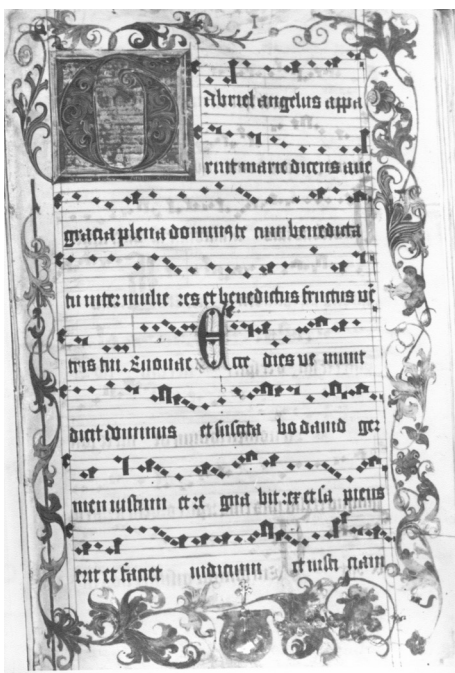 I
Gabriel angelus appa
ruit marie dicens aue
gracia plena dominus te cum benedicta
tu inter mulie res et benedictus fructus vē
tris tui. Euouae Ecce dies ve niunt
dicit dominus et suscita bo dauid ger
men iustum et re gna bit rex et sa piens
erit et faciet iudicium et iusti ciam